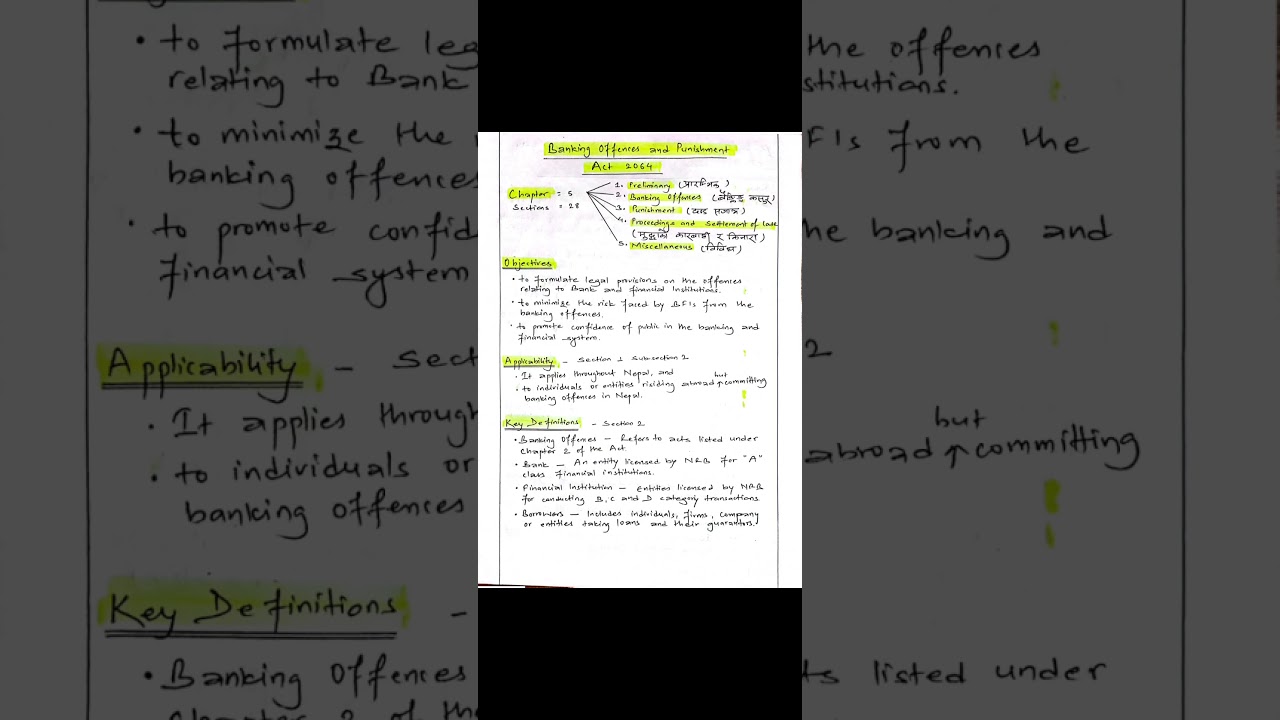 Banking Offences and Punishment
Act 2064
Chapter = 5
Sections = 28
1. Preliminary (प्रारम्भिक)
2. Banking Offences (बैंकिङ्ग कसूर)
3. Punishment (दण्ड सजाय)
4. Proceedings and Settlement of Case
(मुद्दाको कारवाही र किनारा)
5. Miscellaneous (विविध)
Objectives
• to formulate legal provisions on the offences
relating to Bank and Financial Institutions.
• to minimize the risk faced by BFIs from the
banking offences.
• to promote confidence of public in the banking and
financial system.
Applicability – Section 1 Subsection 2
• It applies throughout Nepal, and
• to individuals or entities risiding abroad but committing
banking offences in Nepal.
Key Definitions - Section 2
• Banking Offences – Refers to acts listed under
Chapter 2 of the Act.
• Bank – An entity licensed by NRB for "A"
class financial institutions.
• Financial Institution – Entities licensed by NRB
for conducting B, C and D category transactions
• Borrowers – Includes individuals, firms, company
or entities taking loans and their guarantors.